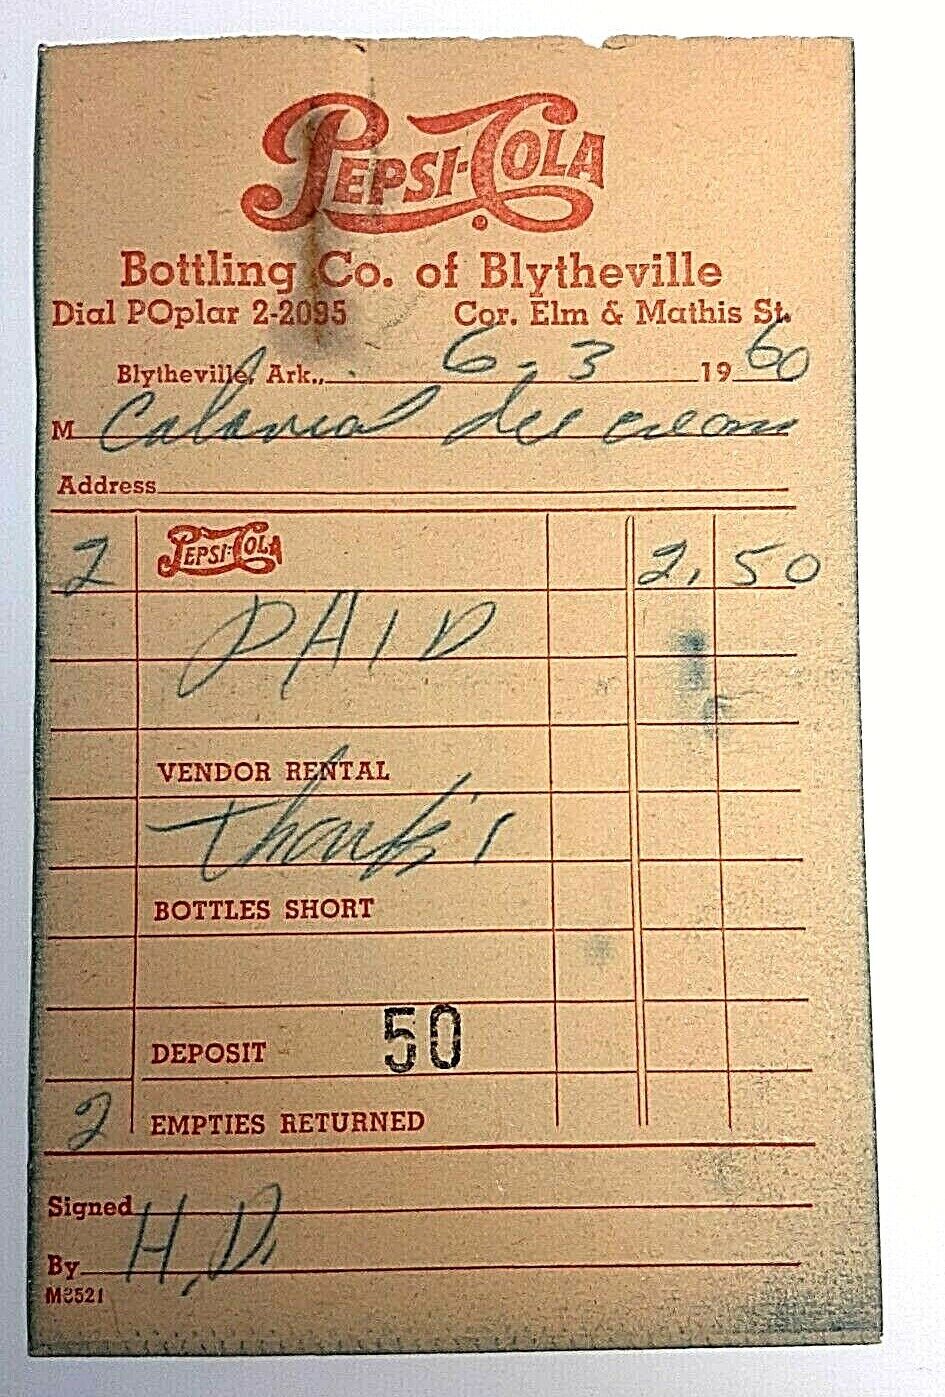 PEPSI-COLA
Bottling Co. of Blytheville
Dial POplar 2-2095 Cor. Elm & Mathis St.
Blytheville, Ark., 6-3 1960
M Colonial Ice cream
Address
2 PEPSI-COLA 2.50
PAID
VENDOR RENTAL
Thank's
BOTTLES SHORT
DEPOSIT 50
2 EMPTIES RETURNED
Signed
By H.D.
M3521